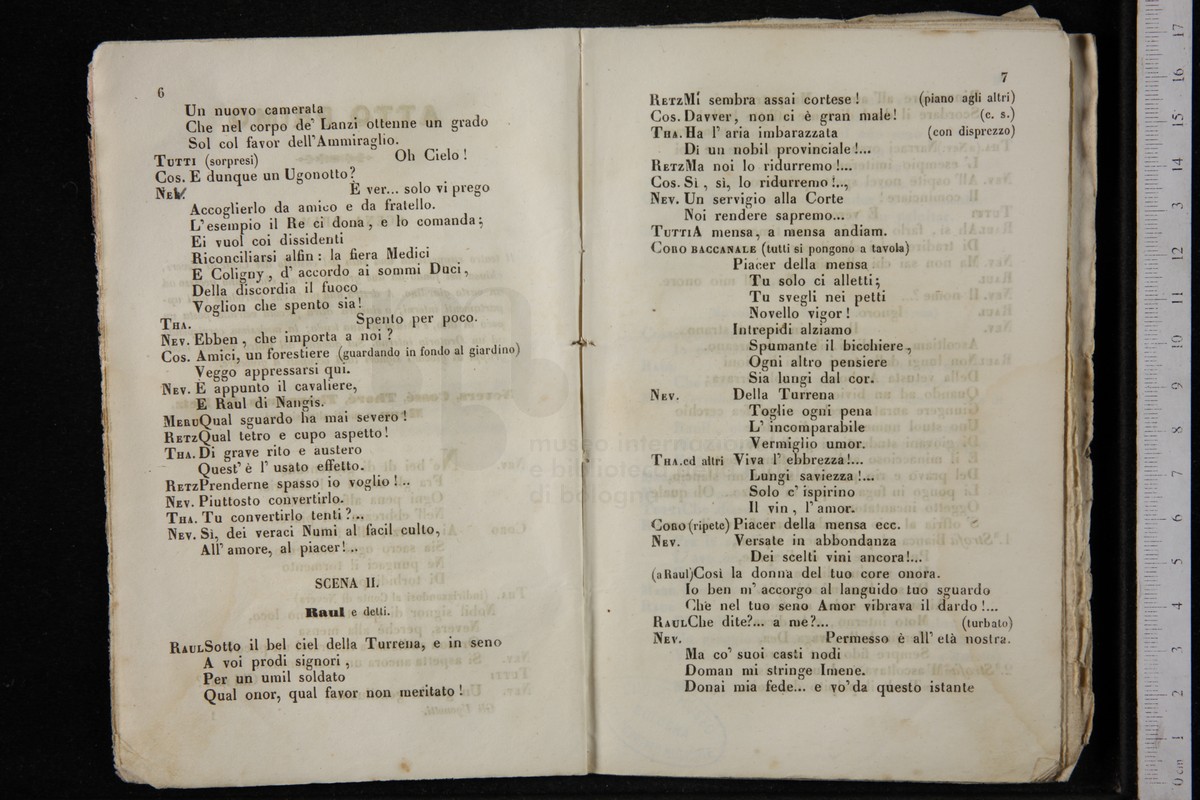 6
Un nuovo camerata
Che nel corpo de' Lanzi ottenne un grado
Sol col favor dell'Ammiraglio.
TUTTI (sorpresi) Oh Cielo!
COS. E dunque un Ugonotto?
NEV. È ver... solo vi prego
Accoglierlo da amico e da fratello.
L'esempio il Re ci dona, e lo comanda;
Ei vuol coi dissidenti
Riconciliarsi alfin: la fiera Medici
E Coligny, d'accordo ai sommi Duci,
Della discordia il fuoco
Voglion che spento sia!
THA. Spento per poco.
NEV. Ebben, che importa a noi?
COS. Amici, un forestiere (guardando in fondo al giardino)
Veggo appressarsi qui.
NEV. È appunto il cavaliere,
E Raul di Nangis.
MERU Qual sguardo ha mai severo!
RETZ Qual tetro e cupo aspetto!
THA. Di grave rito e austero
Quest'è l'usato effetto.
RETZ Prenderne spasso io voglio!..
NEV. Piuttosto convertirlo.
THA. Tu convertirlo tenti?...
NEV. Sì, dei veraci Numi al facil culto,
All'amore, al piacer!..
SCENA II.
Raul e detti.
RAUL Sotto il bel ciel della Turrena, e in seno
A voi prodi signori,
Per un umil soldato
Qual onor, qual favor non meritato!
7
RETZ Mi sembra assai cortese! (piano agli altri)
COS. Davver, non ci è gran male! (c. s.)
THA. Ha l'aria imbarazzata (con disprezzo)
Di un nobil provinciale!...
RETZ Ma noi lo ridurremo!...
COS. Sì, sì, lo ridurremo!..,
NEV. Un servigio alla Corte
Noi rendere sapremo...
TUTTI A mensa, a mensa andiam.
CORO BACCANALE (tutti si pongono a tavola)
Piacer della mensa
Tu solo ci alletti;
Tu svegli nei petti
Novello vigor!
Intrepidi alziamo
Spumante il bicchiere,
Ogni altro pensiere
Sia lungi dal cor.
NEV. Della Turrena
Toglie ogni pena
L'incomparabile
Vermiglio umor.
THA. ed altri Viva l'ebbrezza!...
Lungi saviezza!...
Solo c'ispirino
Il vin, l'amor.
CORO (ripete) Piacer della mensa ecc.
NEV. Versate in abbondanza
Dei scelti vini ancora!...
(a Raul) Così la donna del tuo core onora.
Io ben m'accorgo al languido tuo sguardo
Che nel tuo seno Amor vibrava il dardo!...
RAUL Che dite?... a me?... (turbato)
NEV. Permesso è all'età nostra.
Ma co' suoi casti nodi
Doman mi stringe Imene.
Donai mia fede... e vo'da questo istante
museo internazionale
e biblioteca
di bologna
0 cm 1 2 3 4 5 6 7 8 9 10 11 12 13 14 15 16 17